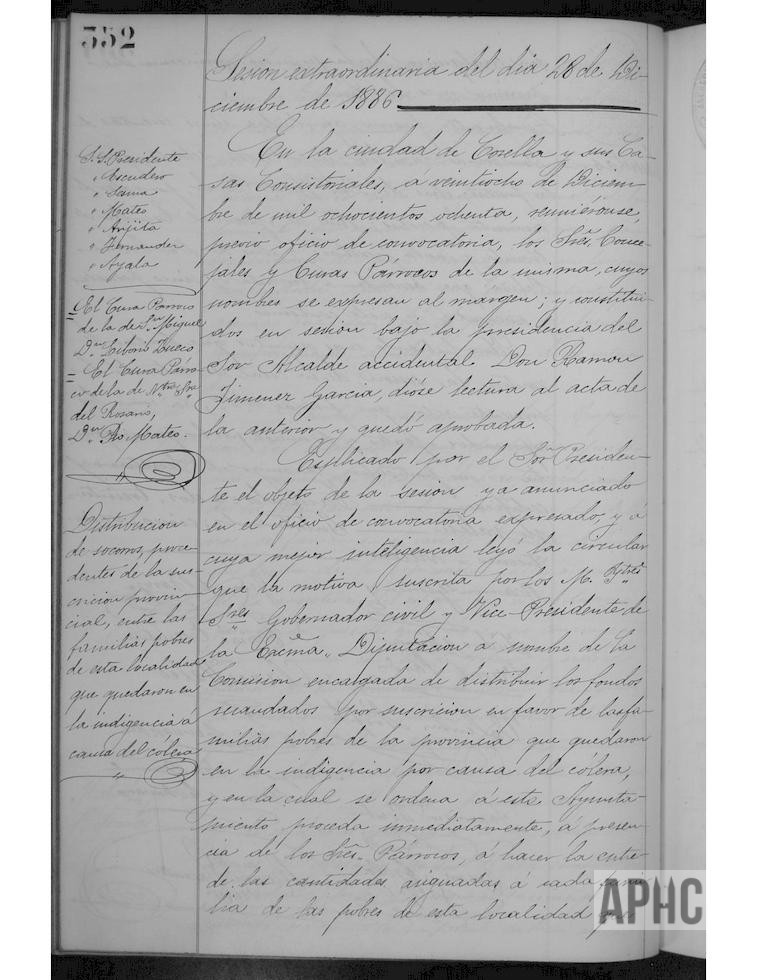 352
Sesion extraordinaria del dia 28 de Di-
ciembre de 1886
S.S. Presidente
" Ascudero
" Sama
" Mateo
" Arijita
" Fernandez
" Ayala
= El Cura Párroco
de la de Sn. Miguel
Dn. Liborio Zueco
= El Cura Párro-
co de la de Ntra. Sra.
del Rosario,
Dn. Pío Mateo.
Distribucion
de socorros, proce-
dentes de la sus-
cricion provin-
cial, entre las
familias pobres
de esta localidad
que quedaron en
la indigencia á
causa del cólera
En la ciudad de Corella y sus Ca-
sas Consistoriales, á veintiocho de Diciem-
bre de mil ochocientos ochenta, reuniéronse,
previo oficio de convocatoria, los Sres. Conce-
jales y Curas Párrocos de la misma, cuyos
nombres se expresan al márgen; y constitui-
dos en sesion bajo la presidencia del
Sor Alcalde accidental Don Ramon
Jimenez Garcia, dióse lectura al acta de
la anterior y quedó aprobada.
Esplicado por el Sor Presiden-
te el objeto de la sesion ya anunciado
en el oficio de convocatoria expresado, y á
cuya mejor inteligencia leyó la circular
que la motiva suscrita por los M. Iltres
Sres Gobernador civil y Vice-Presidente de
la Excma. Diputacion á nombre de la
Comision encargada de distribuir los fondos
recaudados por suscricion en favor de las fa-
milias pobres de la provincia que quedaron
en la indigencia por causa del colera,
y en la cual se ordena á este Ayunta-
miento proceda inmediatamente, á presen-
cia de los Sres. Párrocos, á hacer la entre-
de las cantidades asignadas á cada fami-
lia de las pobres de esta localidad que
APHC